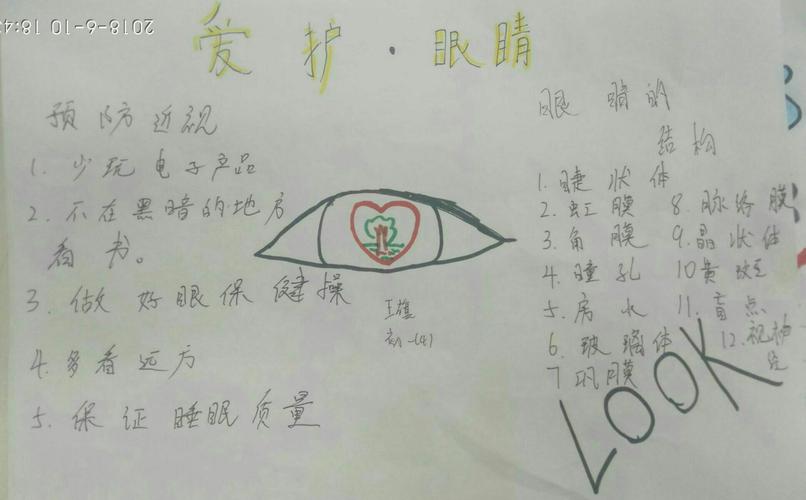 2018-6-10 18:43
爱护·眼睛
预防近视
1. 少玩电子产品
2. 不在黑暗的地方
看书。
3. 做好眼保健操
4. 多看远方
5. 保证睡眠质量
眼睛的
结构
1. 睫状体
2. 虹膜
3. 角膜
4. 瞳孔
5. 房水
6. 玻璃体
7 巩膜
8. 脉络膜
9. 晶状体
10 黄斑
11. 盲点
12. 视神
经
LOOK